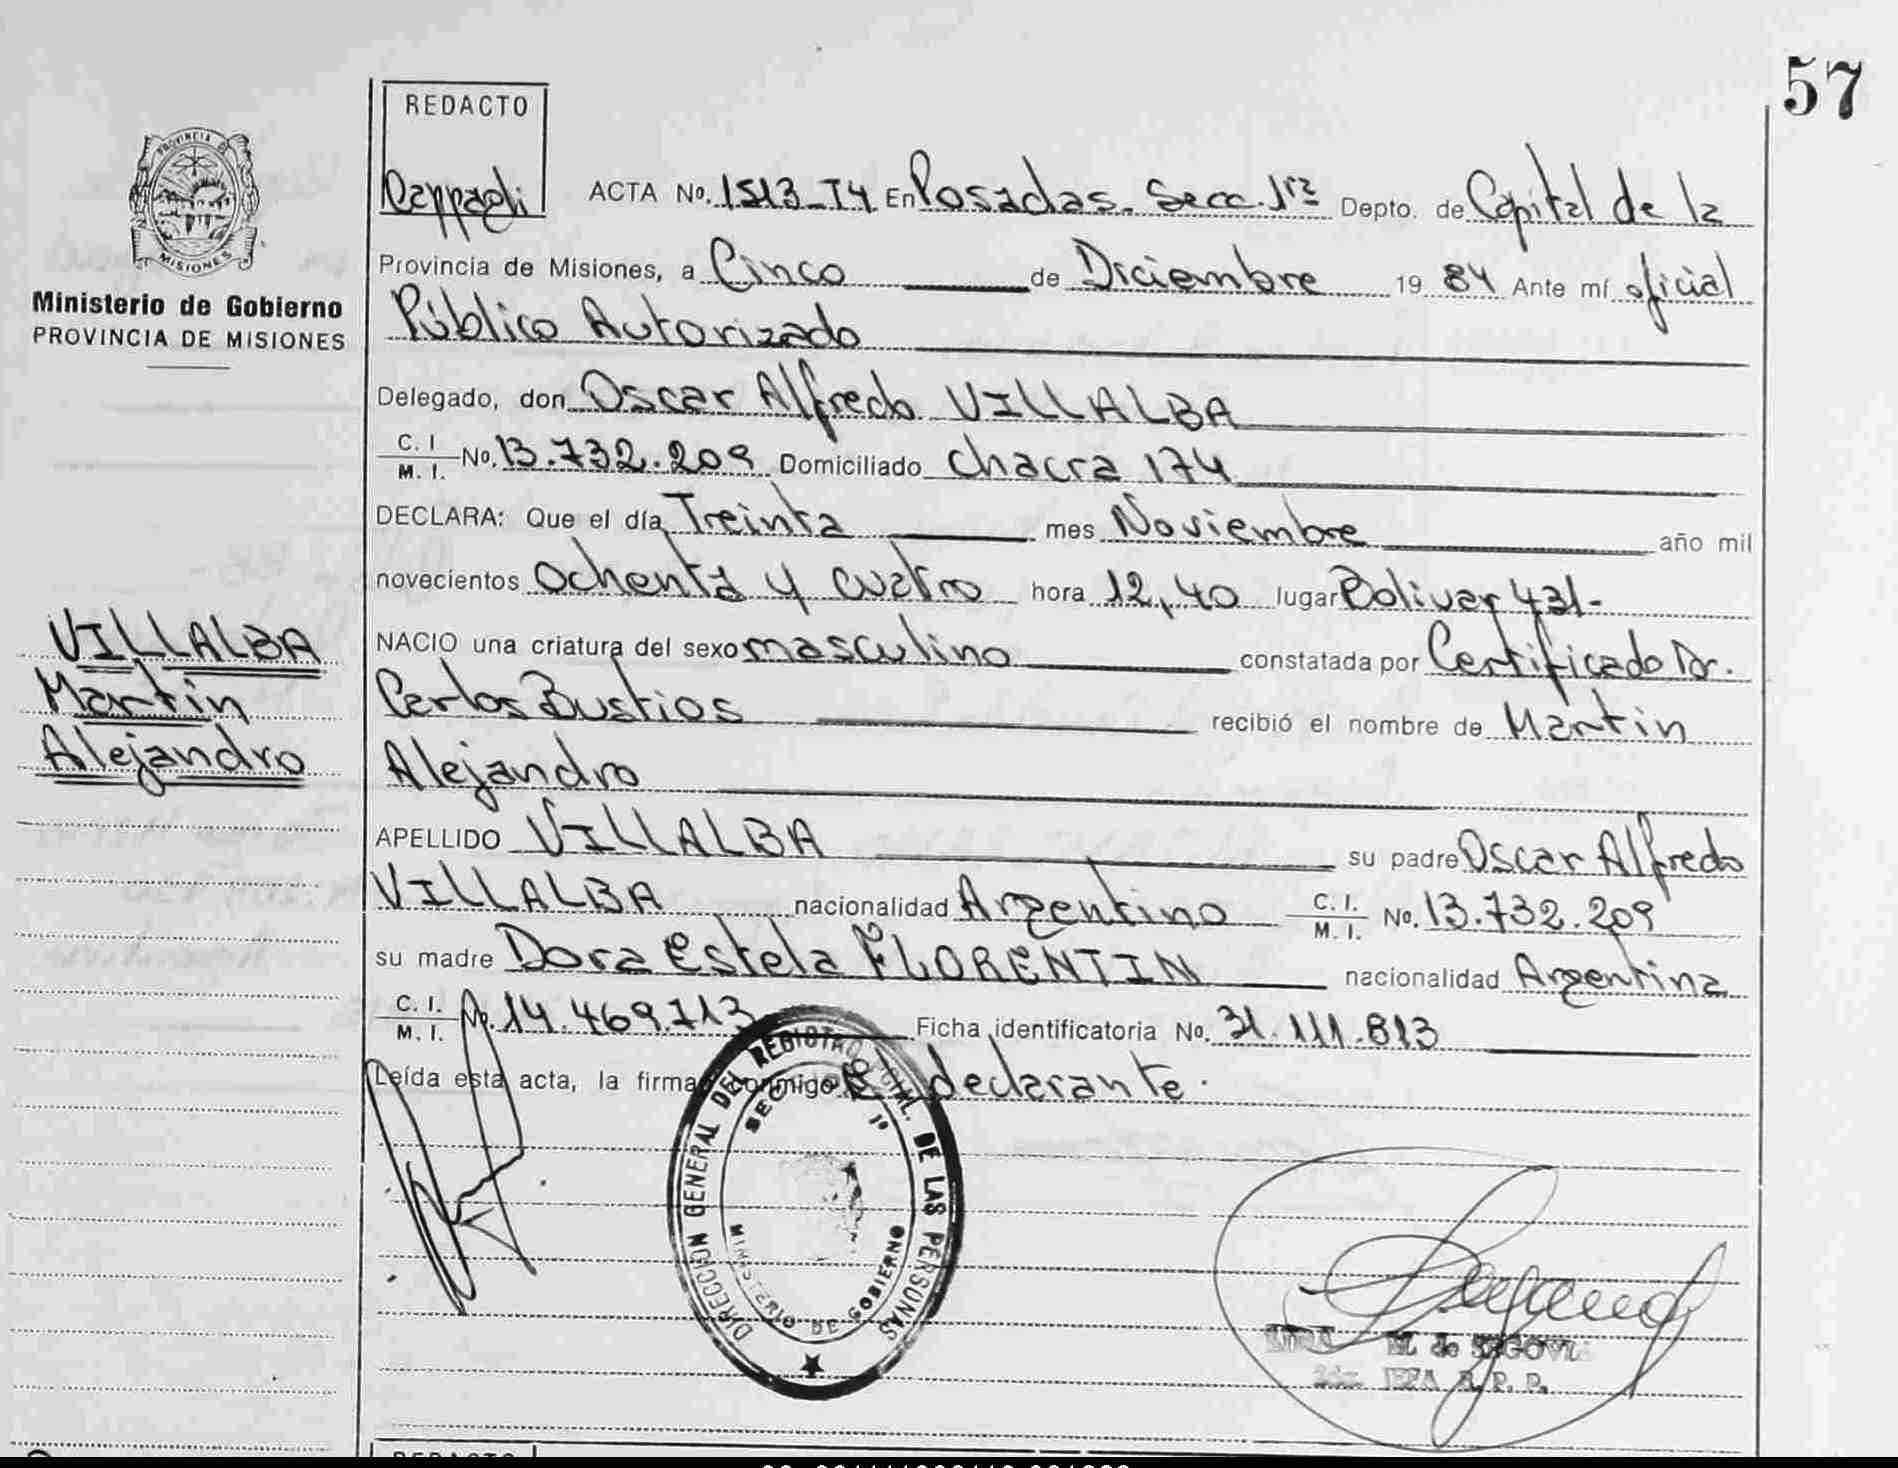 57
REDACTO
Cappaeli
PROVINCIA DE
MISIONES
Ministerio de Gobierno
PROVINCIA DE MISIONES
ACTA No. 1513-T4 En Posadas. Secc. 1ra Depto. de Capital de la
Provincia de Misiones, a Cinco de Diciembre 1984 Ante mí oficial
Público Autorizado
Delegado, don Oscar Alfredo VILLALBA
C. I. M. I. No. 13.732.209 Domiciliado chacra 174
DECLARA: Que el día Treinta mes Noviembre año mil
novecientos ochenta y cuatro hora 12,40 lugar Bolivar 431-
NACIO una criatura del sexo masculino constatada por Certificado Dr.
Carlos Bustios recibió el nombre de Martin
Alejandro
APELLIDO VILLALBA su padre Oscar Alfredo
VILLALBA nacionalidad Argentino C. I. M. I. No. 13.732.209
su madre Dora Estela FLORENTIN nacionalidad Argentina
C. I. M. I. No. 14.469.713 Ficha identificatoria No. 31.111.813
Leída esta acta, la firma conmigo el declarante.
VILLALBA
Martin
Alejandro
DIRECCION GENERAL DEL REGISTRO PCIAL. DE LAS PERSONAS
SECC 1º
MINISTERIO DE GOBIERNO
M. de SEGOVIA
JEFA R. P. P.
REDACTO